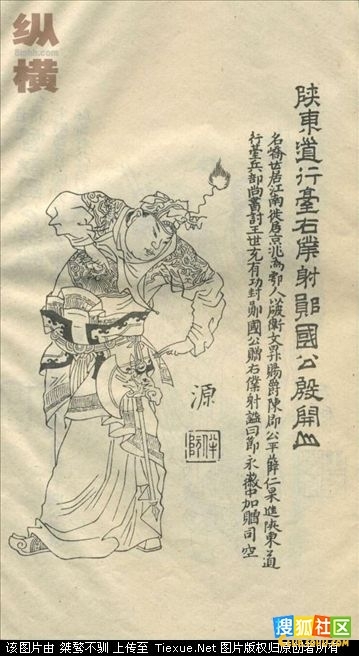 纵横
陝東道行臺右僕射鄖國公殷開山
名嶠世居江南徙居京兆為鄠人以破衛文昇賜爵陳郡公平薛仁杲進陝東道
行臺兵部尚書討王世充有功封鄖國公贈右僕射謚曰節永徽中加贈司空
源
伴阮
搜狐社区
该图片由 桀骜不驯 上传至 Tiexue.Net 图片版权归原创者所有